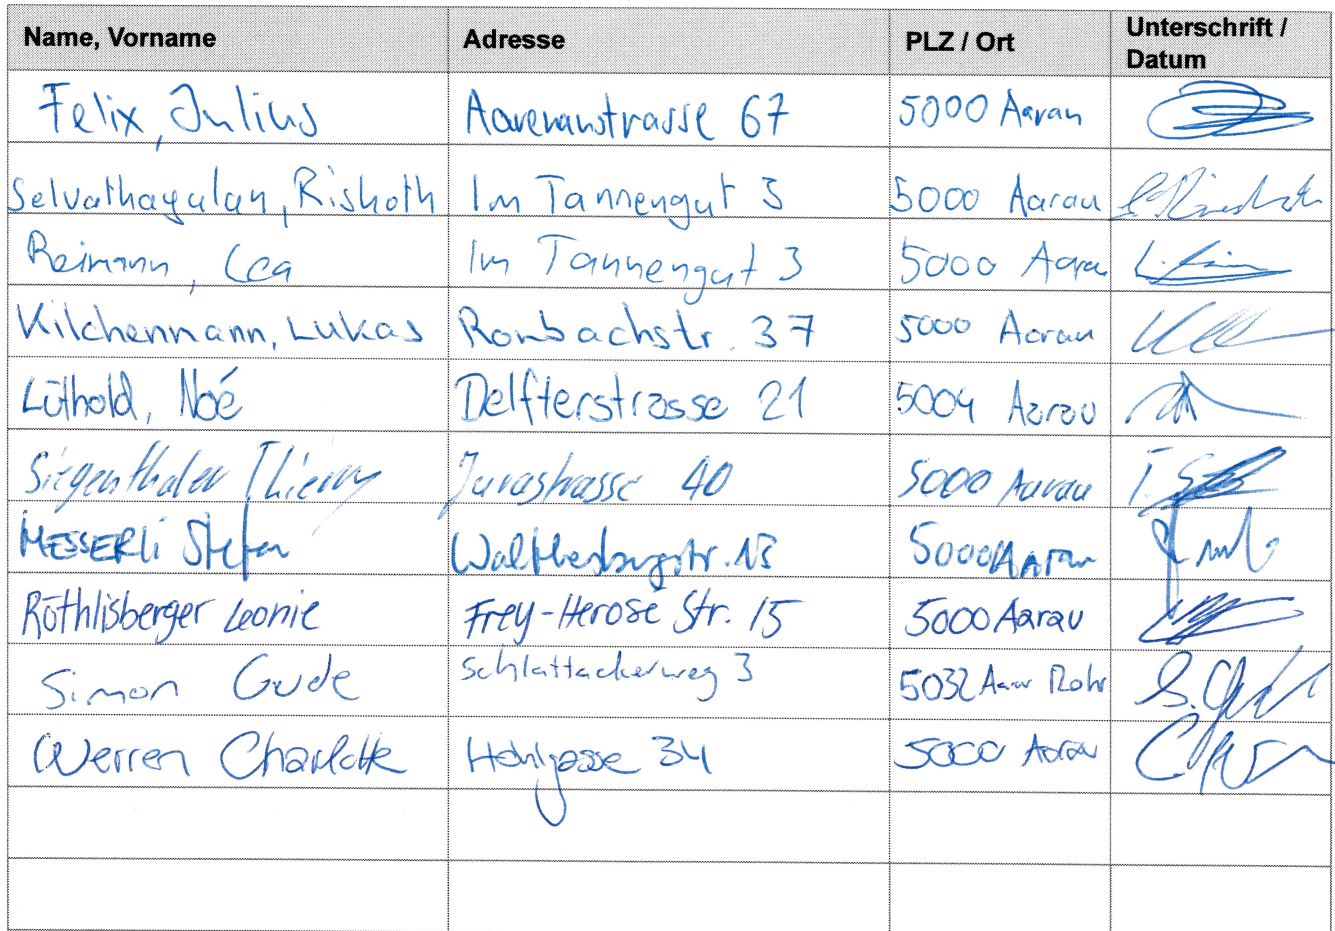 Name, Vorname Adresse PLZ / Ort Unterschrift / Datum
Felix, Julius Aarenaustrasse 67 5000 Aarau
Selvathayalan, Rishoth Im Tannengut 3 5000 Aarau
Reimann, Lea Im Tannengut 3 5000 Aarau
Kilchenmann, Lukas Rombachstr. 37 5000 Aarau
Lüthold, Noé Delfterstrasse 21 5004 Aarau
Siegenthaler Thierry Jurastrasse 40 5000 Aarau
MESSERLi Stefan 5000 Aarau
Röthlisberger Leonie Frey-Herosé Str. 15 5000 Aarau
Simon Gude Schlattackerweg 3 5032 Aarau Rohr
Werren Charlotte Hohlgasse 34 5000 Aarau